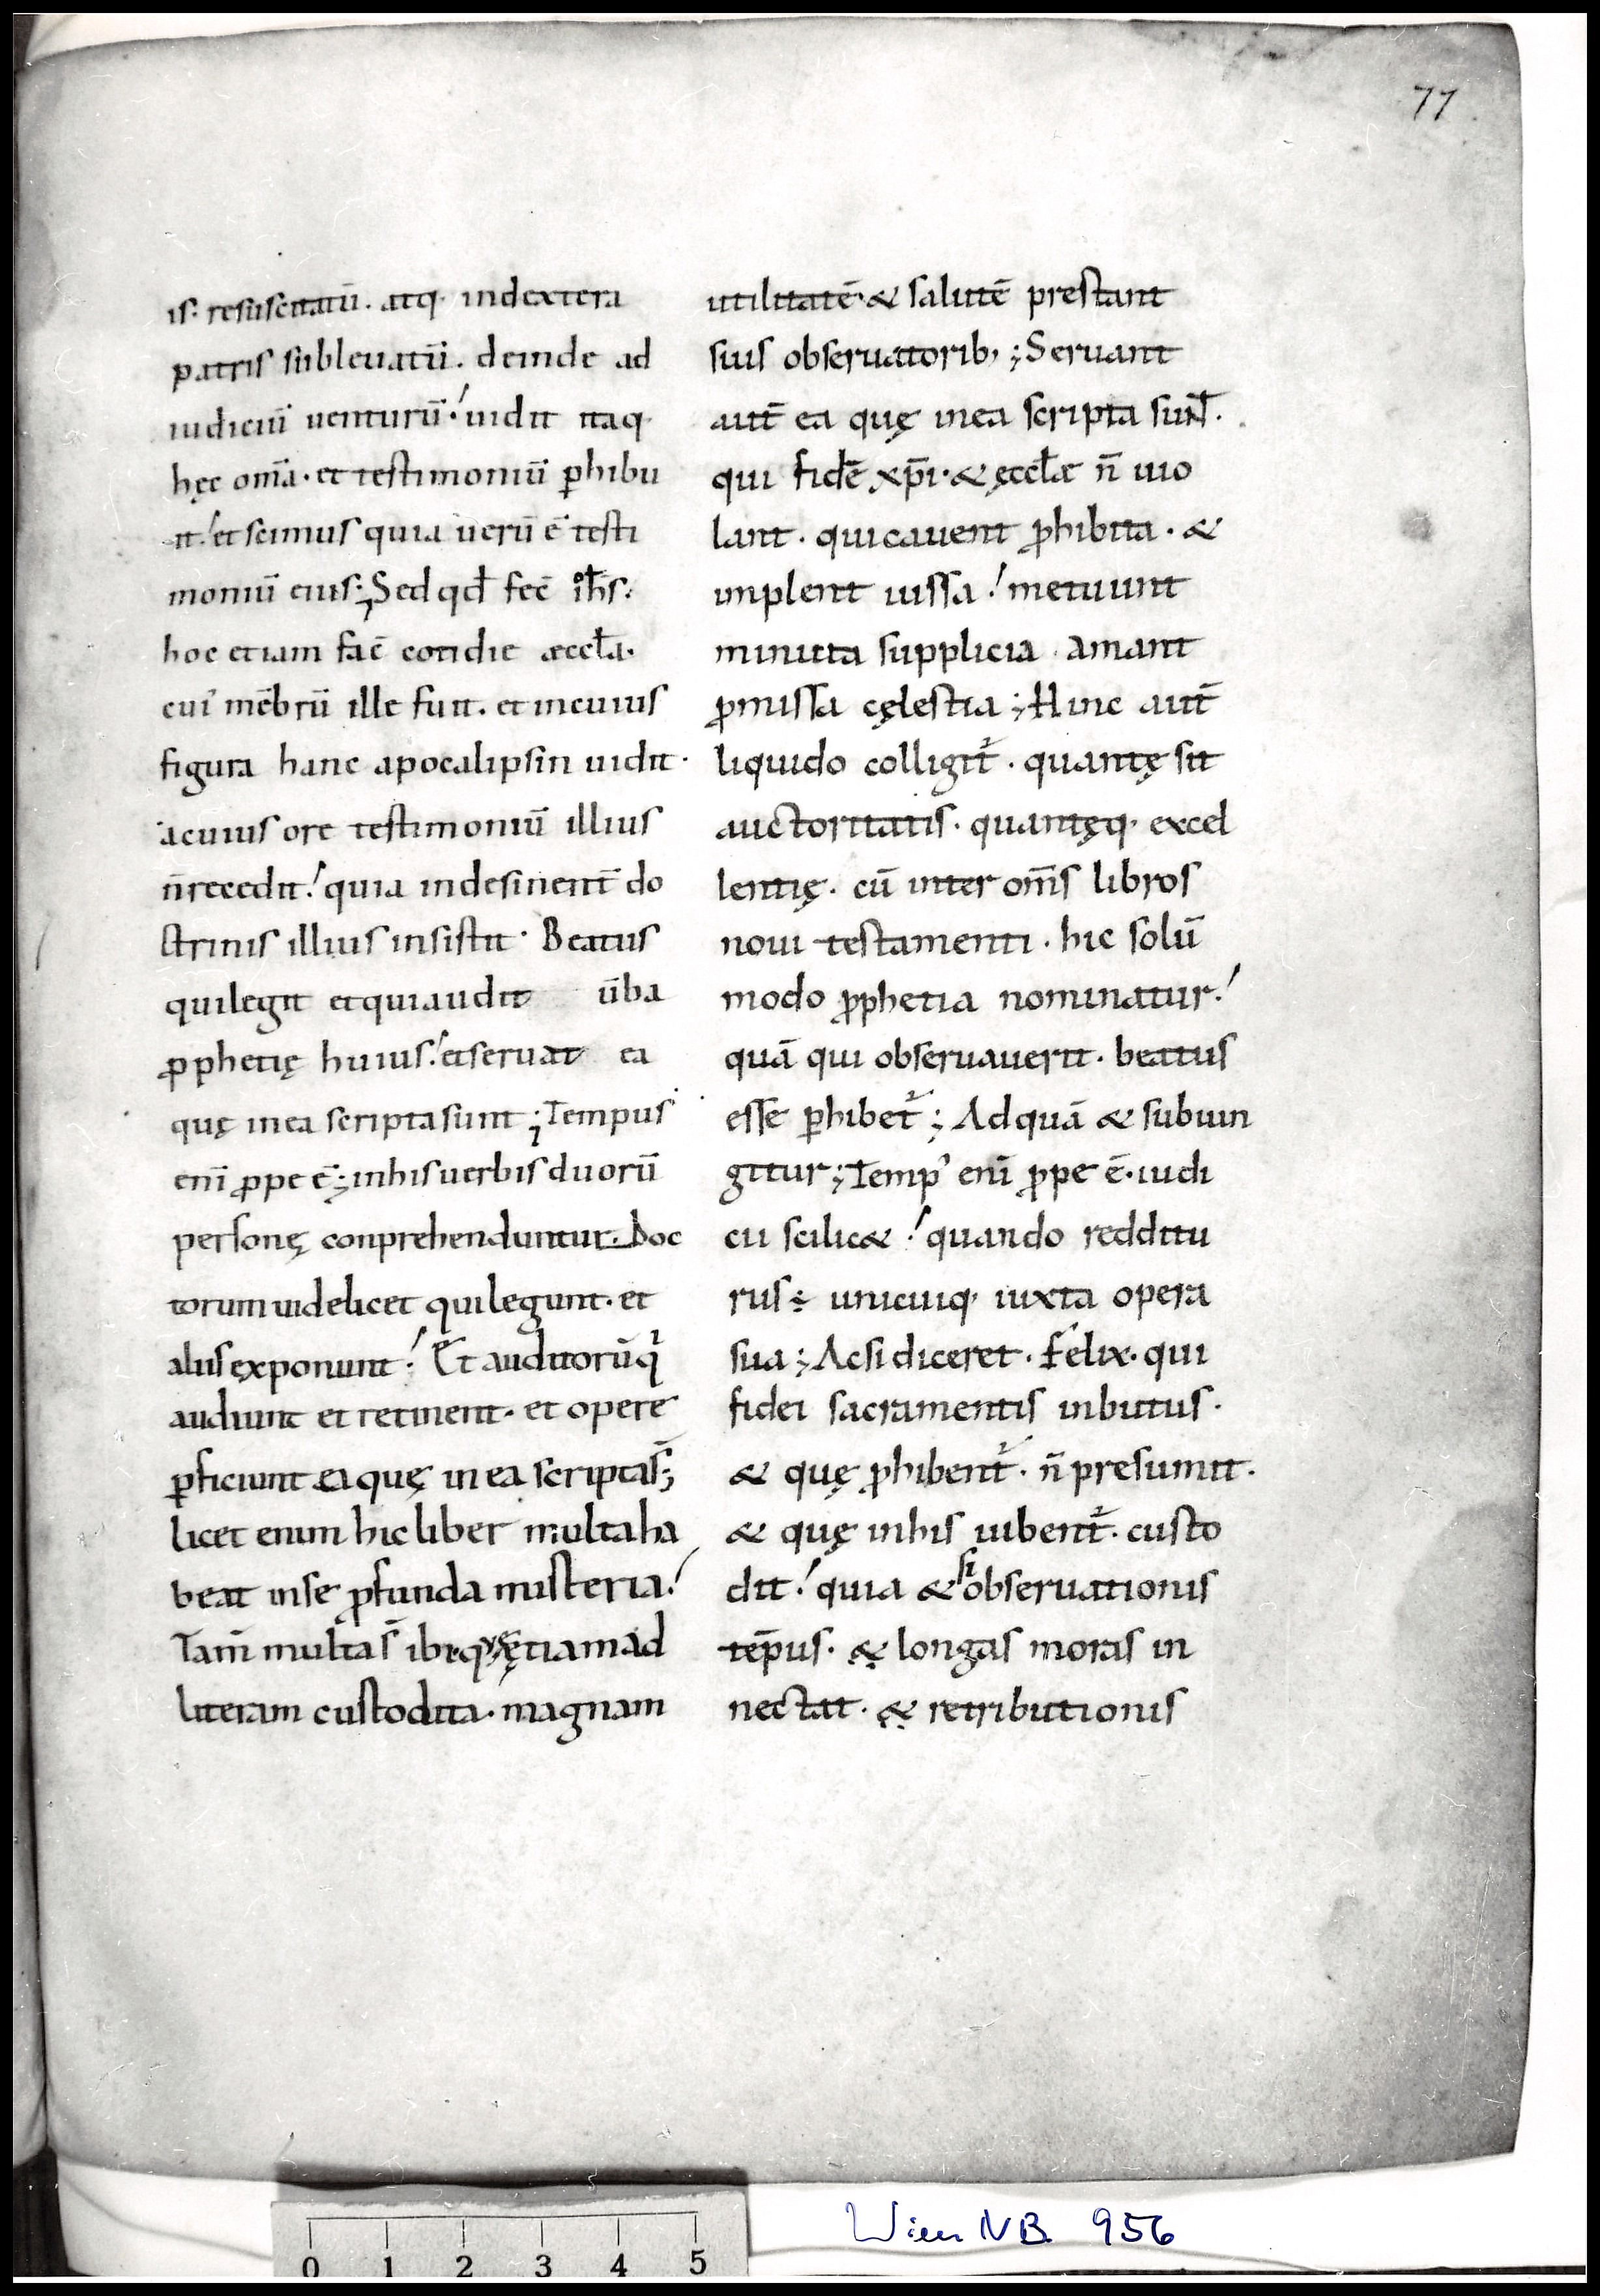 77
is: resuscitatū. atq· indextera
patris subleuatū. deinde ad
iudiciū uenturū! uidit itaq·
hęc om̄a· et testimoniū ꝑhibu
it! et scimus quia uerū ē testi
moniū eius; Sed qđ fec̄ ih̄s:
hoc etiam fac̄ cotidie æccƚa·
cui᾽ mēbrū ille fuit. et incuius
figura hanc apocalipsin uidit·
acuius ore testimoniū illius
n̄ recedit! quia indesinent̄ do
ctrinis illius insistit· Beatus
quilegit etquiaudit ūba
ꝓphetię huius! etseruat ea
quę inea scriptasunt; Tempus
enī ꝓpe ē; inhisuerbis duorū
personę conprehenduntur. Doc
torum uidelicet quilegunt· et
aliis exponunt! Et auditorū qͥ
audiunt et retinent· et opere
ꝑficiunt ea quę in ea scripta s̄;
licet enim hic liber multa ha
beat inse ꝓfunda misteria!
Tam̄ multa s̄ ibi· quę etiam ad
literam custodita· magnam
utilitatē· & salutē prestant
suis obseruatorib,; Seruant
aut̄ ea quę inea scripta sunt.
qui fidē xp̄i· & ęccƚæ n̄ uio
lant· quicauent ꝓhibita· &
implent iussa! metuunt
minita supplicia· amant
ꝓmissa cęlestia; Hinc aut̄
liquido colligit᷑· quantę sit
auctoritatis· quantęq· excel
lentię· cū inter om̄s libros
noui testamenti· hic solū
modo ꝓphetia nominatur!
quā qui obseruauerit· beatus
esse ꝑhibet᷑; Adquā & subiun
gitur; Temp᾽ enī ꝓpe ē· iudi
cii scilic&! quando redditu
rus ÷ unicuiq· iuxta opera
sua; Acsi diceret· Felix· qui
fidei sacramentis inbutus·
& quę ꝓhibent᷑· n̄ presumit·
& quę inhis iubent᷑· custo
dit! quia & si obseruationis
tēpus· & longas moras in
nectat· & retributionis
0 1 2 3 4 5
Wien NB 956